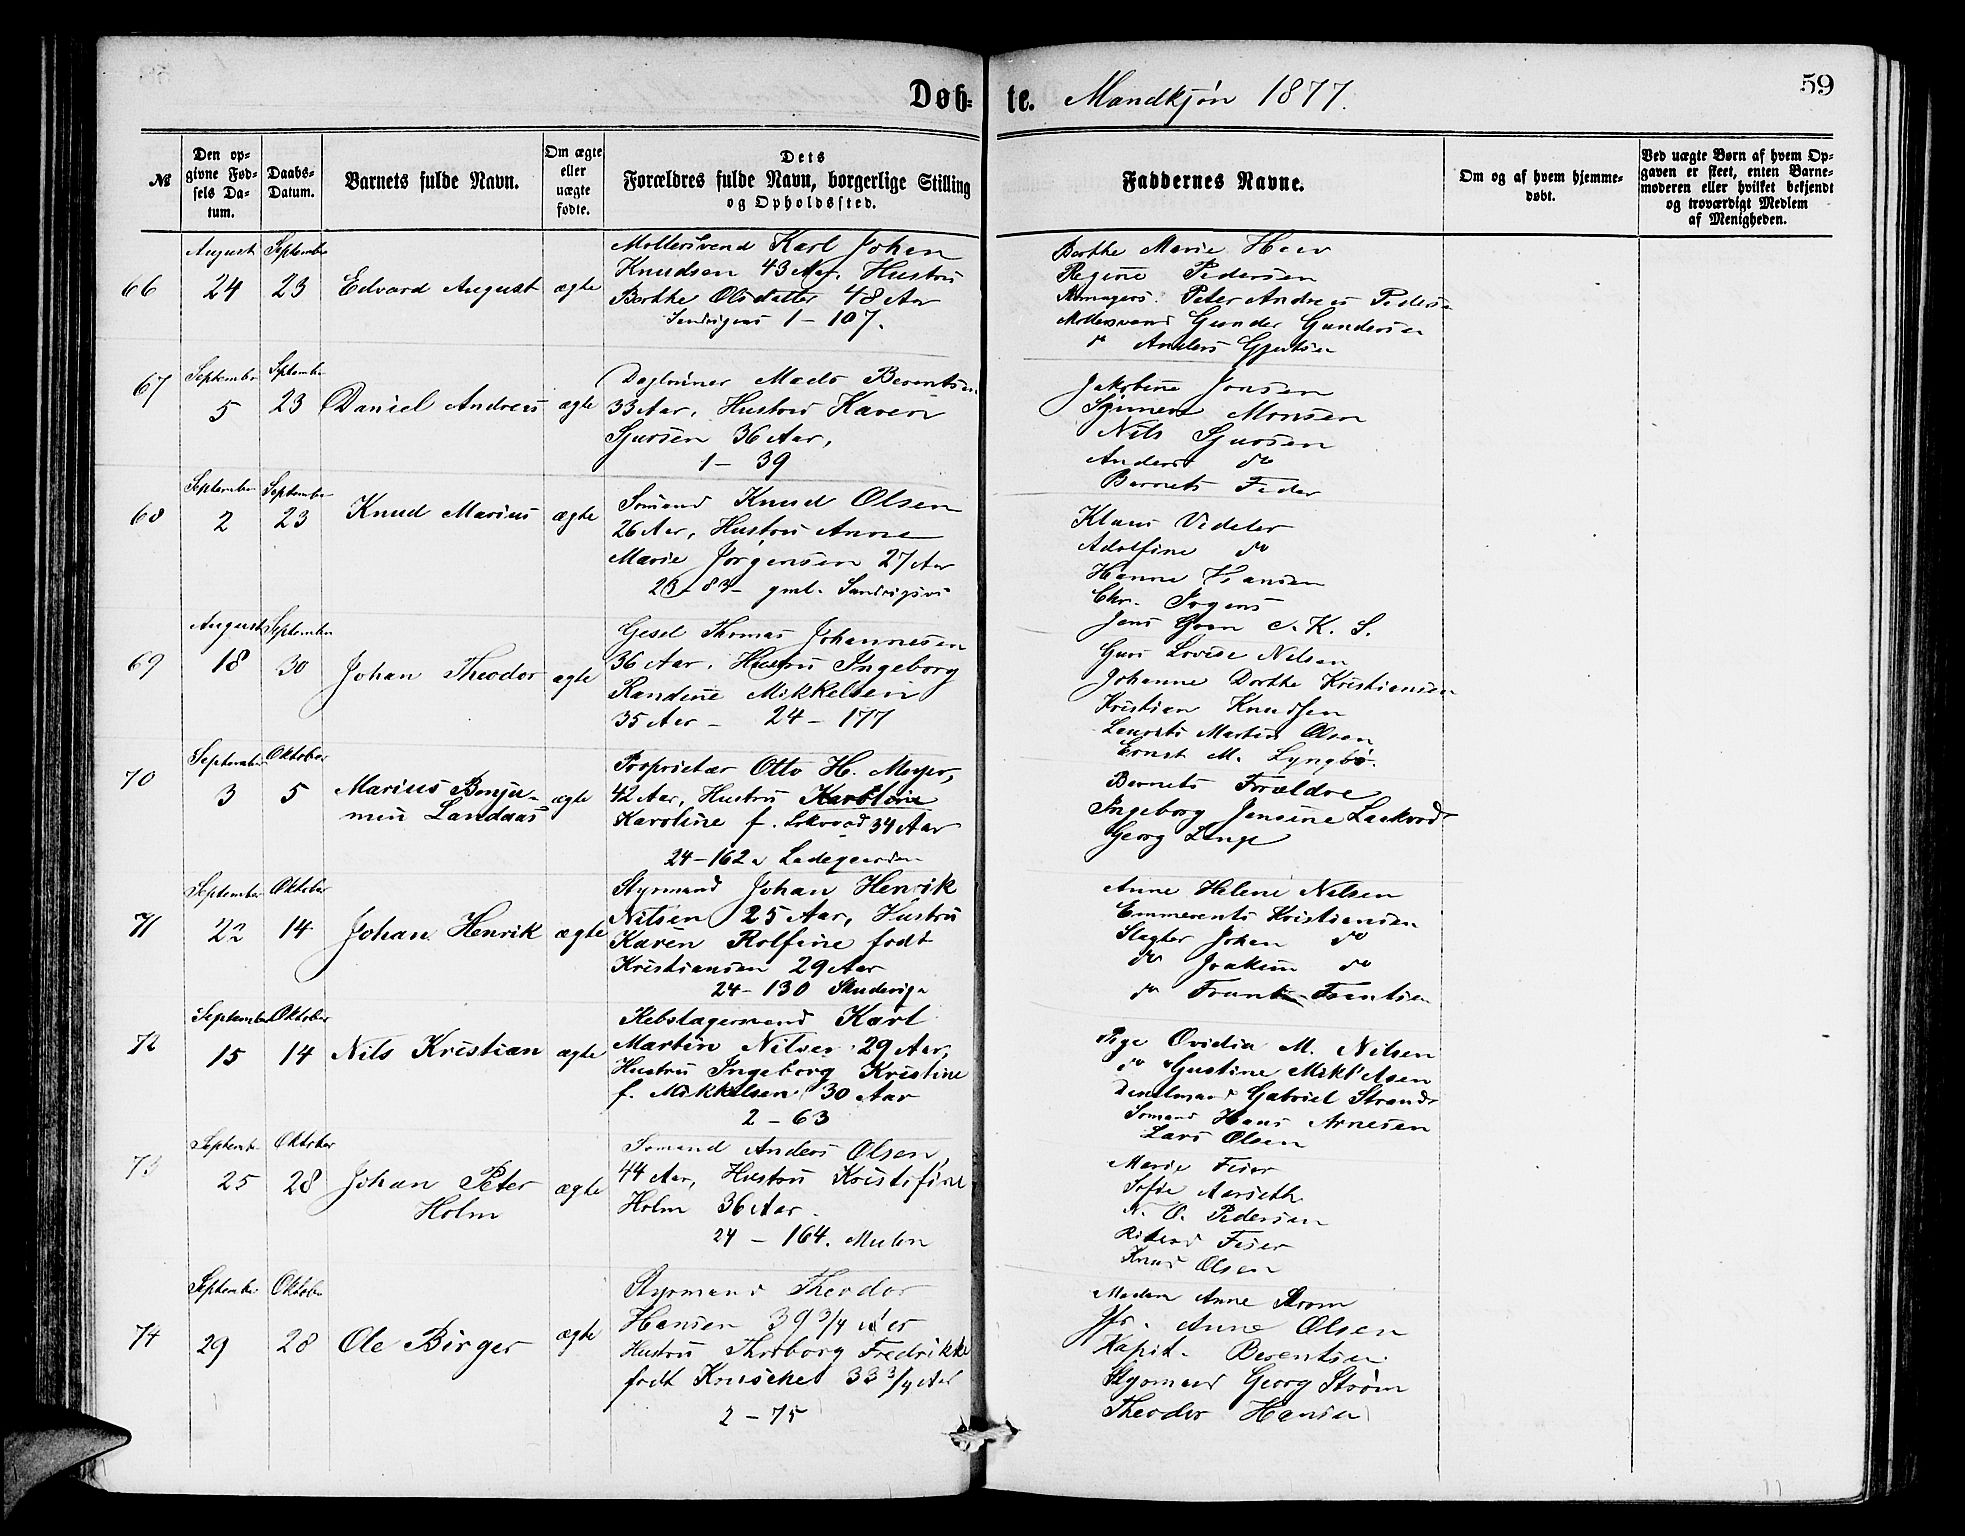 Døb-te. Mandkjøn 1877.
59
№
Den op-
givne Fød-
sels Da-
tum.
Daabs-
Datum.
Barnets fulde Navn.
Om ægte
eller
uægte
fødte.
Dets
Forældres fulde Navn, borgerlige Stilling
og Opholdssted.
Faddernes Navne.
Om og af hvem hjemme-
døbt.
Ved uægte Børn af hvem Op-
gaven er skeet, enten Barne-
moderen eller hvilket bekjendt
og troværdigt Medlem
af Menigheden.
66
August
24
September
23
Edvard August
ægte
Møllersvend Karl Johan
Knudsen 43 Aar, Hustru
Berthe Olsdatter 48 Aar
1 – 107.
Berthe Marie
Regine Pedersen
Peter Andreas
Møllersvend Gunder Gundersen
do Anders Gjertsen
67
September
5
September
23
Daniel Andreas
ægte
Daglønner Mads Berentsen
33 Aar, Hustru Karen
Sjursen 36 Aar,
1 – 39
Jakobine Jonsen
Monsen
Nils Sjursen
Anders do
Barnets Fader
68
September
2
September
23
Knud Marius
ægte
Sømand Knud Olsen
26 Aar, Hustru Anne
Marie Jørgensen 27 Aar
23 – 83 – gml.
Klaus
Adolfine do
Hanne Hansen
Chr.
Jens
69
August
18
September
30
Johan Theodor
ægte
Gesel Thomas Johannesen
36 Aar, Hustru Ingeborg
Randine Mikkelsen
35 Aar – 24 – 177
Lovise Nilsen
Johanne Dorthe Kristiansen
Kristian Knudsen
Martin Olsen
Ernst M. Lyngbø.
70
September
3
Oktober
5
Marius Benja-
min Landaas
ægte
Proprietær Otto H. Meyer,
42 Aar, Hustru Karoline
Karoline f. 34 Aar
24 – 162 a Ladegaarden
Barnets Forældre
Ingeborg Jensine
Georg Lange
71
September
22
Oktober
14
Johan Henrik
ægte
Styrmand Johan Henrik
Nilsen 25 Aar, Hustru
Karen Rolfine født
Kristiansen 29 Aar
24 – 130 Skudevige
Anne Helene Nilsen
Kristiansen
Slagter Johan do
do Joakim do
do Frantsen
72
September
15
Oktober
14
Nils Kristian
ægte
Rebslagersvend Karl
Martin Nilsen 29 Aar,
Hustru Ingeborg Kristine
f. Mikkelsen 30 Aar
2 – 63
Pige Ovidia M. Nilsen
do Gustine Mikkelsen
Gabriel Strand
Sømand Hans Arnesen
Lars Olsen
73
September
25
Oktober
28
Johan Peter
Holm
ægte
Sømand Anders Olsen,
44 Aar, Hustru Kristifine
Holm 36 Aar.
24 – 164.
Marie Feier
Sofie
N. O. Pedersen
Rikard Feier
Knud Olsen
74
September
29
Oktober
28
Ole Birger
ægte
Styrmand Theodor
Hansen 39 3/4 Aar
Hustru Thorborg Fredrikke
født 33 3/4 Aar
2 – 75
Madam Anne Strøm
Jfr. Anne Olsen
Kapit. Berentsen
Styrmand Georg Strøm
Theodor Hansen